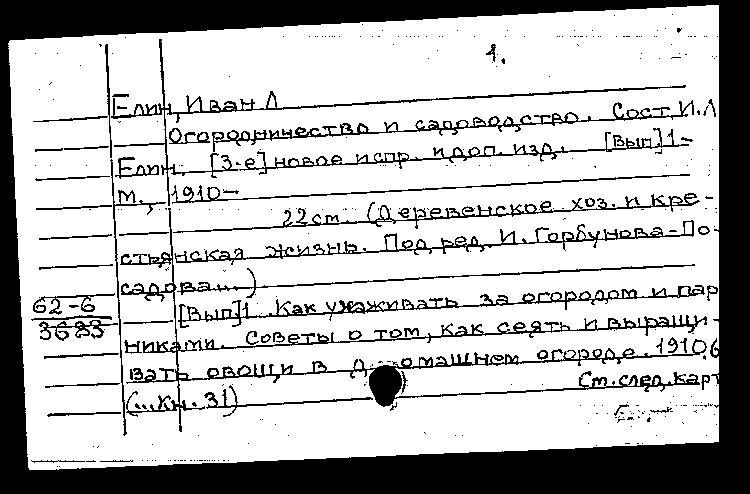 1.
Елин, Иван Л
Огородничество и садоводство. Сост. И.Л
Елин. [3-е] новое испр. и доп. изд. [Вып] 1-
М., 1910-
22 cm. (Деревенское хоз. и кре-
стьянская жизнь. Под ред. И. Горбунова-По-
садова...)
62-6 [Вып] 1 Как ухаживать за огородом и пар
3623 никами. Советы о том, как сеять и выращи-
вать овощи в д омашнем огороде. 1910.
(...Кн. 31) См. след. карт